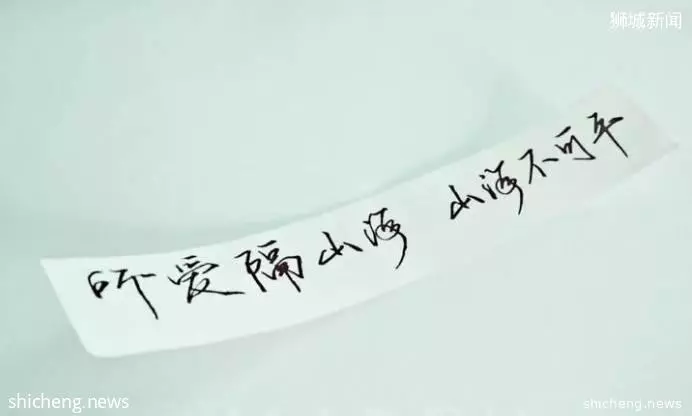 狮城新闻
所爱隔山海 山海不可平
shicheng.news
shicheng.news